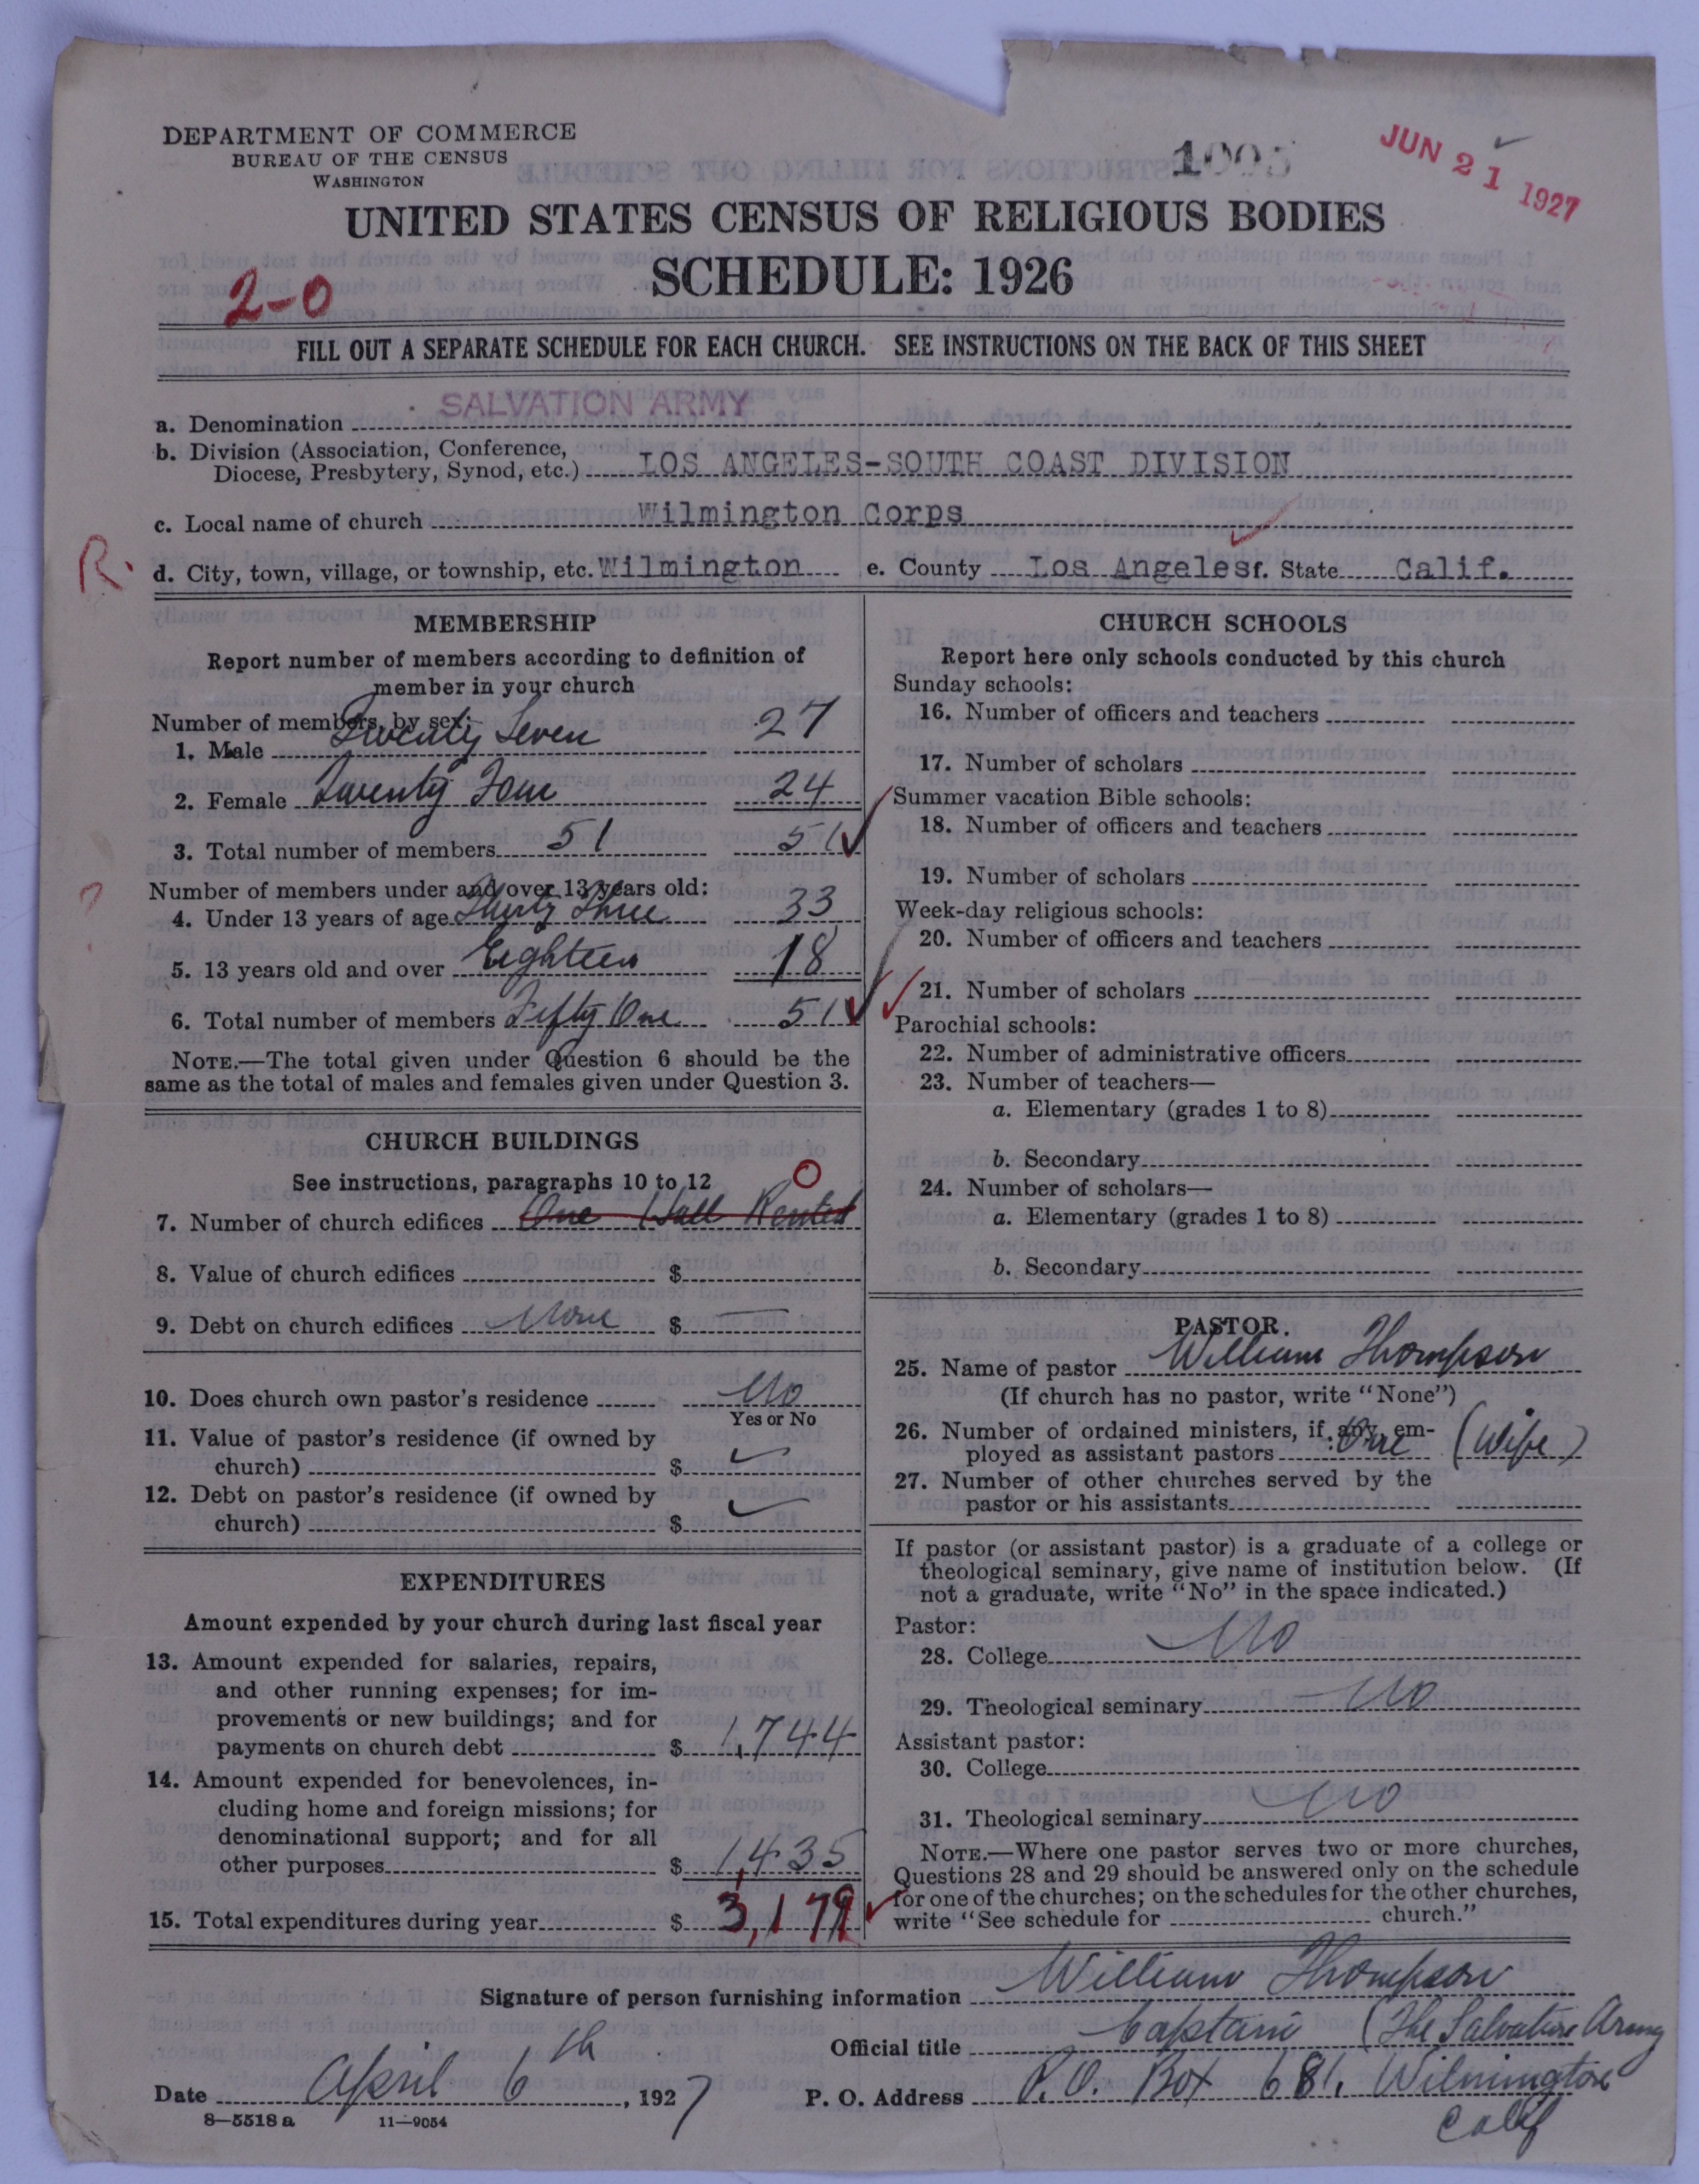 DEPARTMENT OF COMMERCE
BUREAU OF THE CENSUS
WASHINGTON
1005
JUN 21 1927
UNITED STATES CENSUS OF RELIGIOUS BODIES
SCHEDULE: 1926
2-0
FILL OUT A SEPARATE SCHEDULE FOR EACH CHURCH. SEE INSTRUCTIONS ON THE BACK OF THIS SHEET
a. Denomination SALVATION ARMY
b. Division (Association, Conference,
Diocese, Presbytery, Synod, etc.) LOS ANGELES-SOUTH COAST DIVISION
c. Local name of church Wilmington Corps
R. d. City, town, village, or township, etc. Wilmington e. County Los Angeles f. State Calif.
MEMBERSHIP
Report number of members according to definition of
member in your church
Number of members, by sex:
1. Male Twenty Seven 27
2. Female Twenty Four 24
3. Total number of members 51 51
Number of members under and over 13 years old:
4. Under 13 years of age Thirty Three 33
5. 13 years old and over Eighteen 18
6. Total number of members Fifty One 51
NOTE.—The total given under Question 6 should be the
same as the total of males and females given under Question 3.
CHURCH BUILDINGS
See instructions, paragraphs 10 to 12 0
7. Number of church edifices One Hall Rented
8. Value of church edifices $
9. Debt on church edifices None $
10. Does church own pastor's residence No
Yes or No
11. Value of pastor's residence (if owned by
church) $
12. Debt on pastor's residence (if owned by
church) $
EXPENDITURES
Amount expended by your church during last fiscal year
13. Amount expended for salaries, repairs,
and other running expenses; for im-
provements or new buildings; and for
payments on church debt $ 1,744
14. Amount expended for benevolences, in-
cluding home and foreign missions; for
denominational support; and for all
other purposes $ 1,435
15. Total expenditures during year $ 3,179
CHURCH SCHOOLS
Report here only schools conducted by this church
Sunday schools:
16. Number of officers and teachers
17. Number of scholars
Summer vacation Bible schools:
18. Number of officers and teachers
19. Number of scholars
Week-day religious schools:
20. Number of officers and teachers
21. Number of scholars
Parochial schools:
22. Number of administrative officers
23. Number of teachers—
a. Elementary (grades 1 to 8)
b. Secondary
24. Number of scholars—
a. Elementary (grades 1 to 8)
b. Secondary
PASTOR.
25. Name of pastor William Thompson
(If church has no pastor, write "None")
26. Number of ordained ministers, if any, em-
ployed as assistant pastors One (Wife)
27. Number of other churches served by the
pastor or his assistants
If pastor (or assistant pastor) is a graduate of a college or
theological seminary, give name of institution below. (If
not a graduate, write "No" in the space indicated.)
Pastor:
28. College No
29. Theological seminary No
Assistant pastor:
30. College
31. Theological seminary No
NOTE.—Where one pastor serves two or more churches,
Questions 28 and 29 should be answered only on the schedule
for one of the churches; on the schedules for the other churches,
write "See schedule for church."
Signature of person furnishing information William Thompson
Official title Captain (The Salvation Army
Date April 6th, 1927 P. O. Address P.O. Box 681, Wilmington
Calif
8—5518 a 11—9054